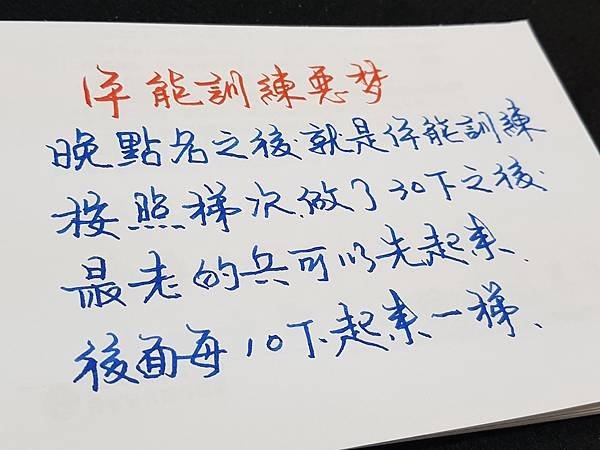 体能訓練悪梦
晚點名之後就是体能訓練
按照梯次做了30下之後
最老的兵可以先起來、
後面每10下起來一梯、